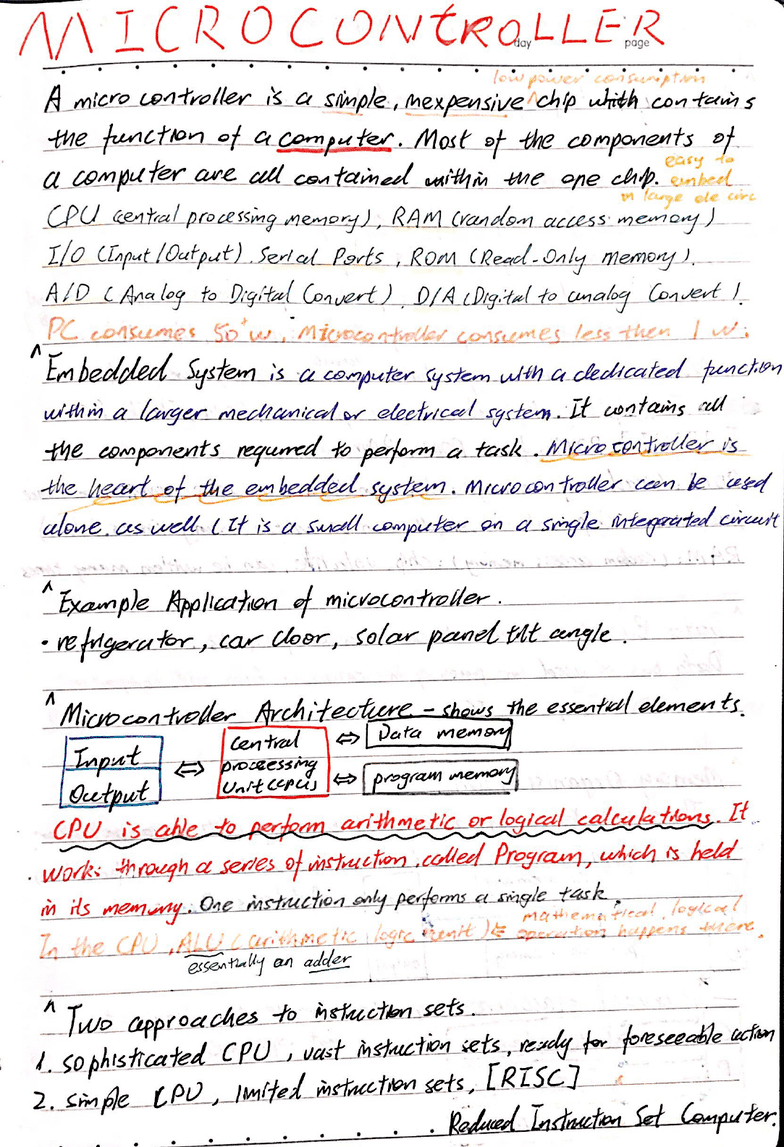 MICROCONTROLLER
day
page
low power consumption
A micro controller is a simple, inexpensive ^ chip which contains
the function of a computer. Most of the components of
a computer are all contained within the one chip.
easy to
embed
in large ele circ
CPU (central processing memory), RAM (random access memory)
I/O (Input/Output). Serial Ports, ROM (Read-Only memory).
A/D (Analog to Digital Convert). D/A (Digital to analog Convert).
PC consumes 50+w, Microcontroller consumes less then 1 w.
^ Embedded System is a computer system with a dedicated function
within a larger mechanical or electrical system. It contains all
the components required to perform a task. Microcontroller is
the heart of the embedded system. Microcontroller can be used
alone. as well. (It is a small computer on a single integrated circuit
^ Example Application of microcontroller.
• refrigerator, car door, solar panel tilt angle.
^ Microcontroller Architecture - shows the essential elements.
Input
Output
⇔
Central
processing
Unit (CPU)
⇔ Data memory
⇔ program memory
CPU is able to perform arithmetic or logical calculations. It
work: through a series of instruction, called Program, which is held
in its memory. One instruction only performs a single task.
In the CPU, ALU (arithmetic logic unit) is mathematical, logical
operation happens there.
essentially an adder
^ Two approaches to instruction sets.
1. sophisticated CPU, vast instruction sets, ready for foreseeable action
2. simple CPU, limited instruction sets, [RISC]
Reduced Instruction Set Computer.